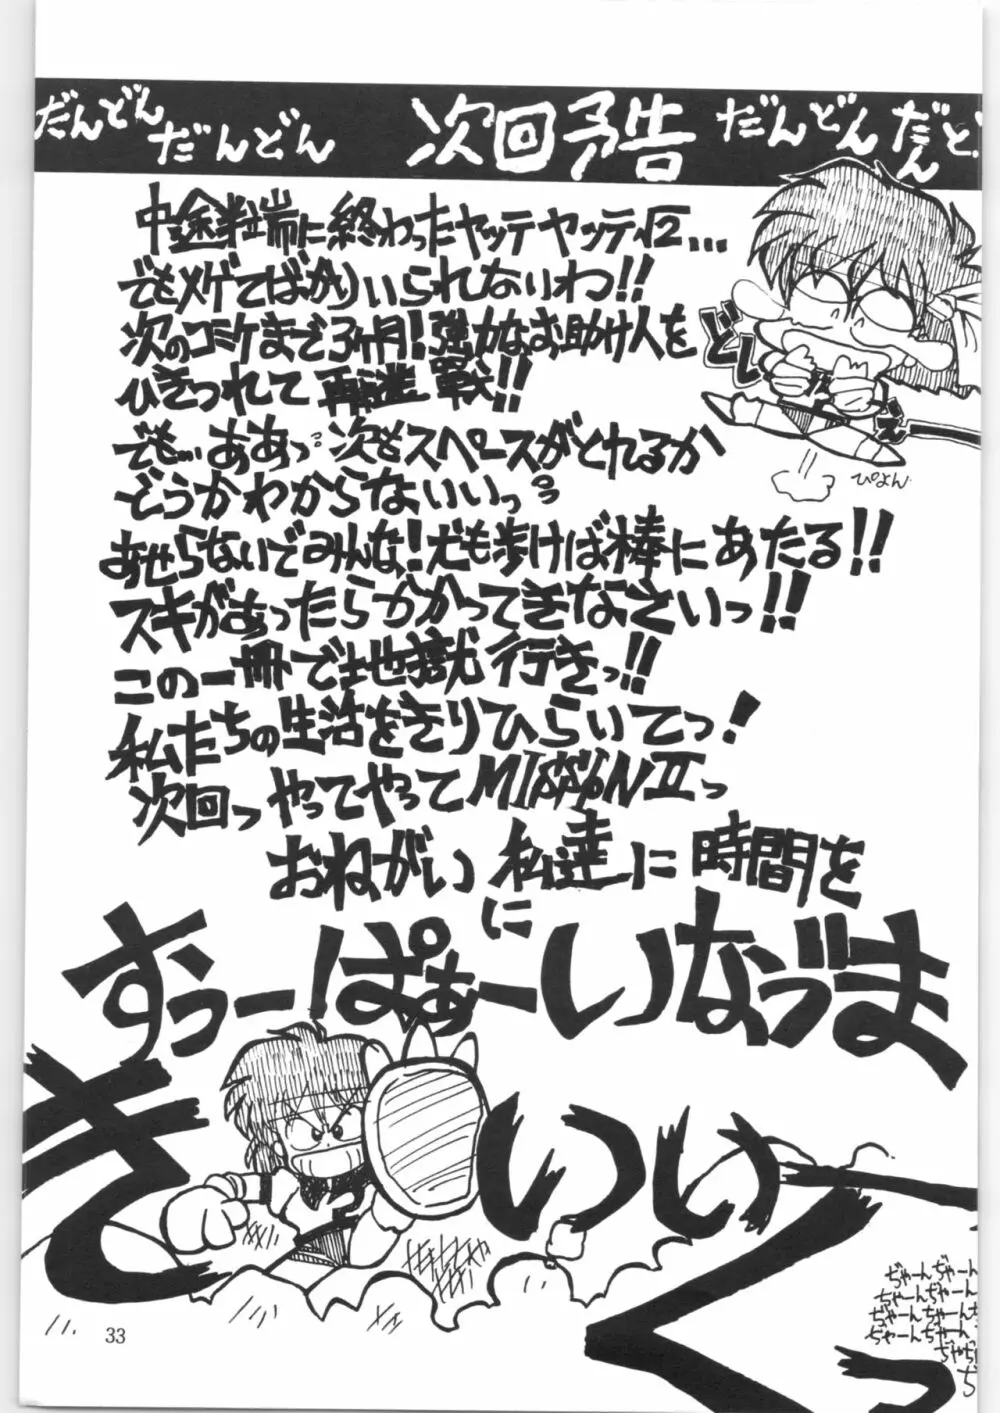 だんどん だんどん 次回予告 だんどん だん ど
中途半端に終わったヤッテヤッテ√2…
でもメゲてばかりいられないわ!!
次のコミケまで3ヶ月!強力なお助け人を
ひきつれて再進戦!!
でも…ああっ 次もスペースがとれるか
どうかわからないいっ
あせらないでみんな!犬も歩けば棒にあたる!!
スキがあったらかかってきなさいっ!!
この一冊で地獄行きっ!!
私たちの生活をきりひらいてっ!
次回っやってやってMISSION Ⅱっ
おねがい 私達に時間を
に
すぅーぱぁーいなづま
きいいくっ
ぴよん
ぢゃーんぢゃーん
ぢゃーんぢゃーん
ぢゃーんぢゃーん
ぢゃーんぢゃーん
ぢゃぢ
ぢ
33